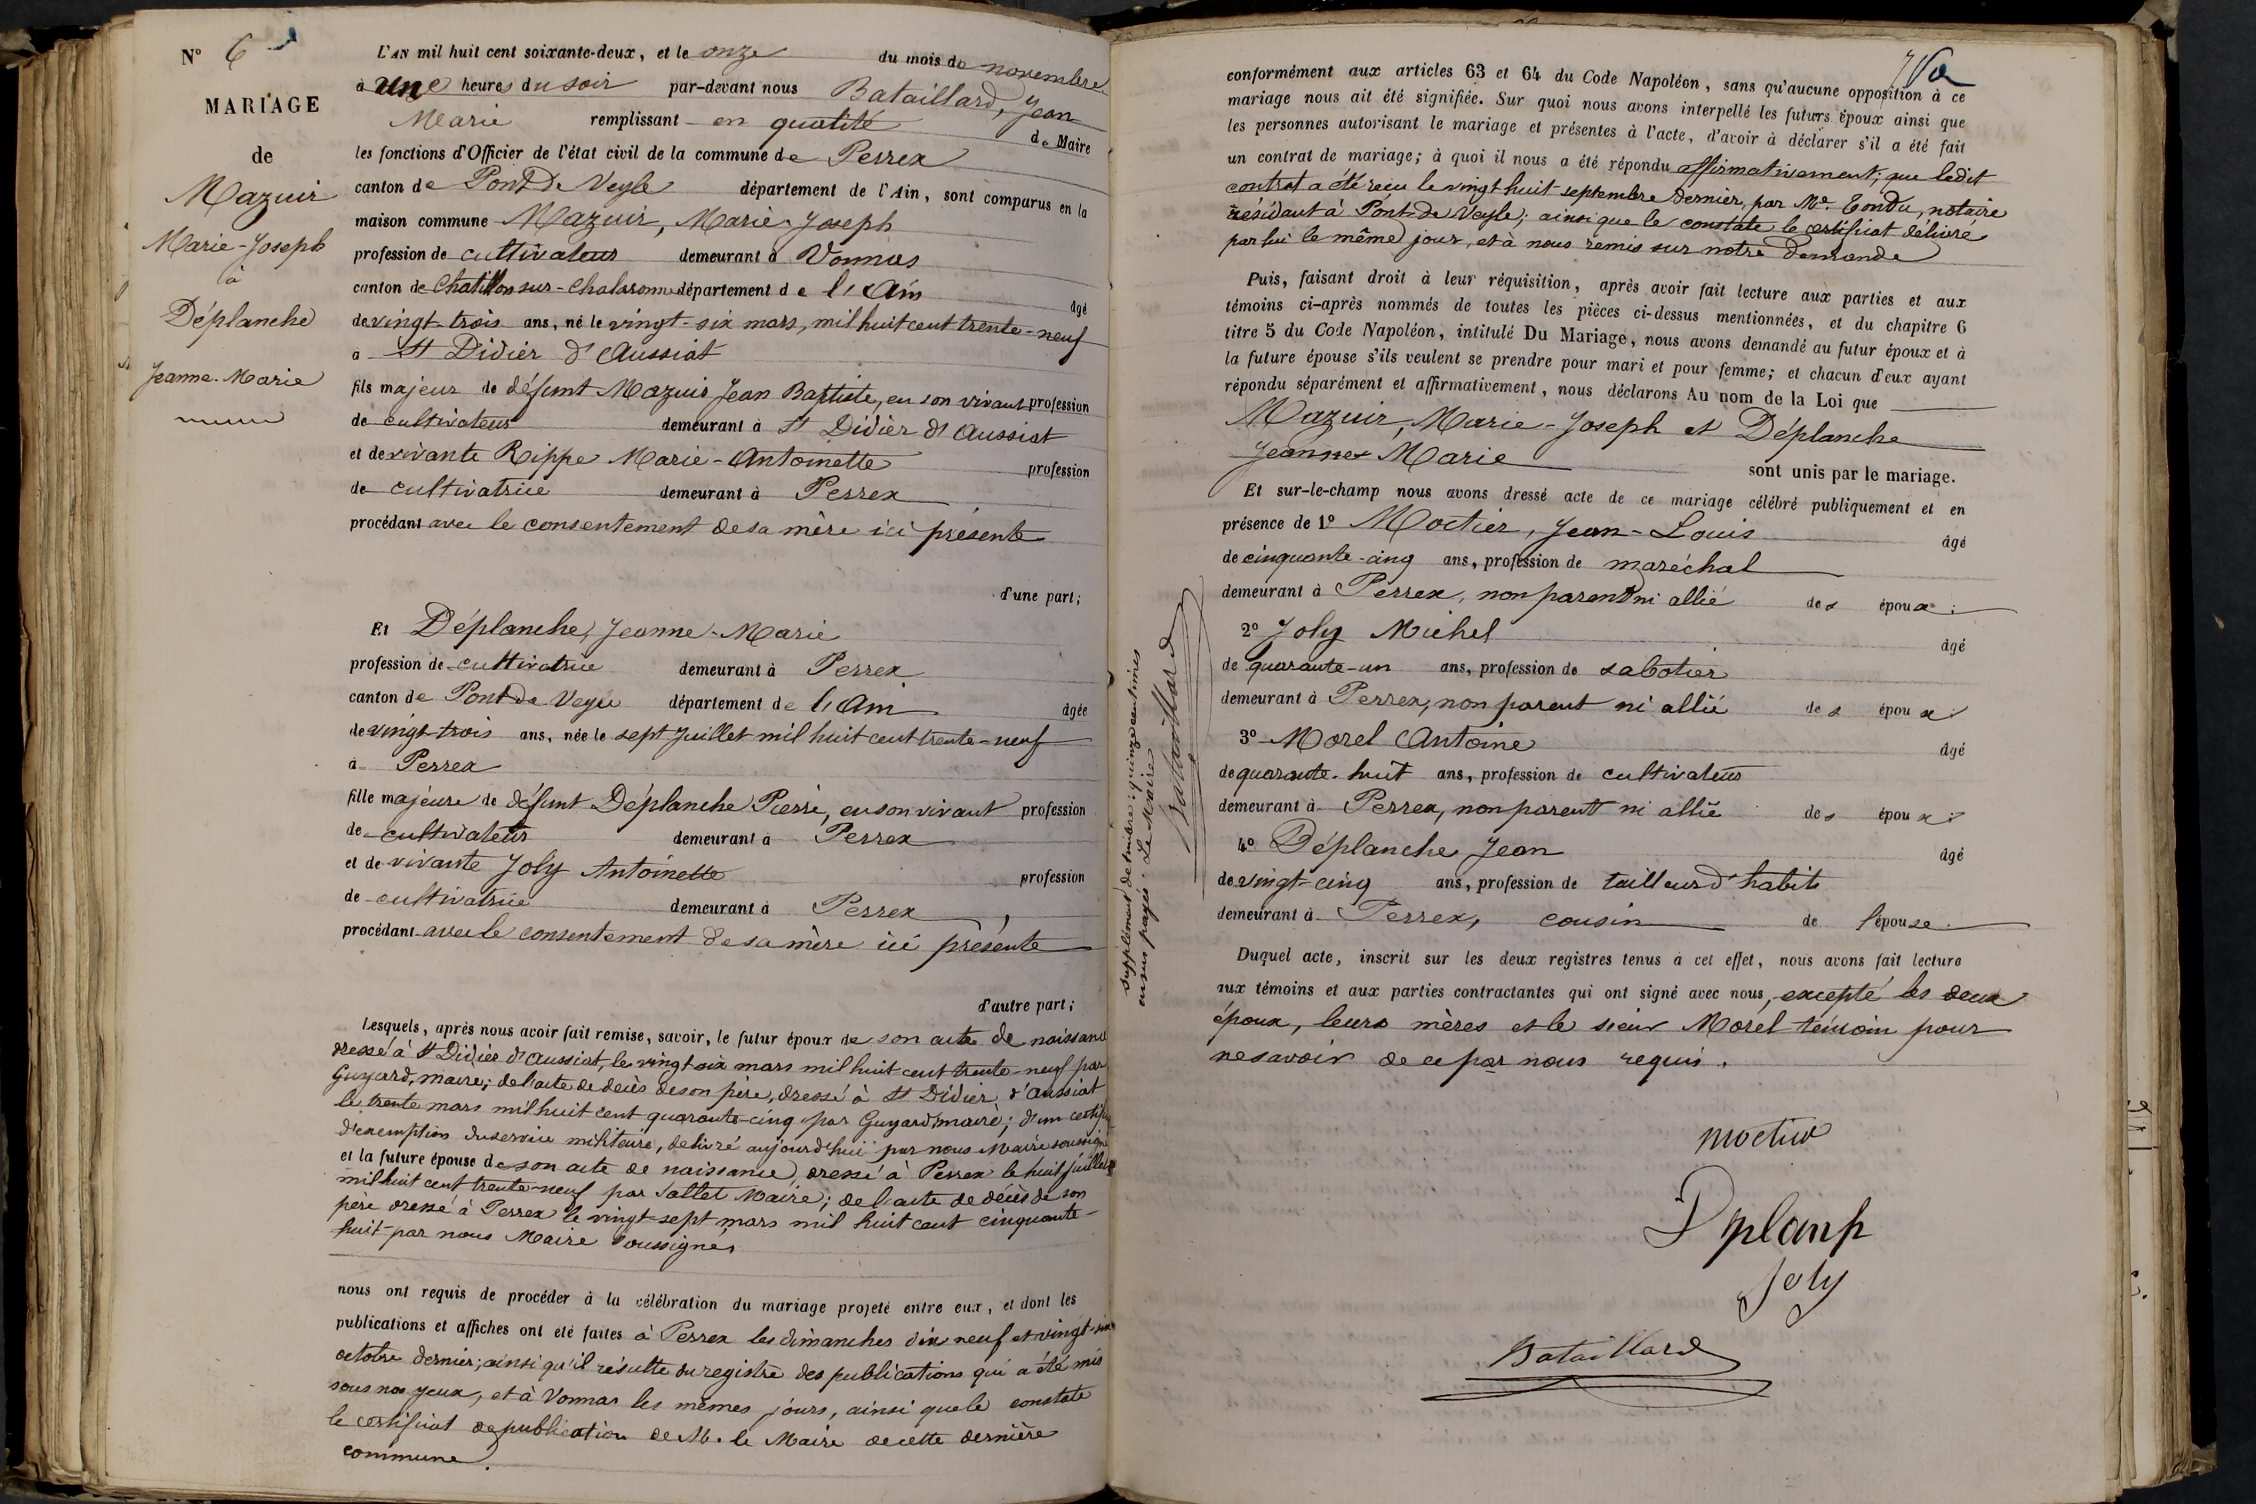 N° 6
MARIAGE
de
Mazuir
Marie-Joseph
à
Déplanche
Jeanne-Marie
L'AN mil huit cent soixante-deux, et le onze du mois de novembre
à une heures du soir par-devant nous Bataillard, Jean
Marie remplissant en qualité de Maire
les fonctions d'Officier de l'état civil de la commune de Perrex
canton de Pont De Veyle département de l'Ain, sont comparus en la
maison commune Mazuir, Marie-Joseph
profession de cultivateur demeurant à Vonnas
canton de Chatillon sur-Chalaronne département de l'Ain âgé
de vingt-trois ans, né le vingt-six mars, mil huit cent trente-neuf
à St Didier d'Aussiat
fils majeur de défunt Mazuir Jean Baptiste, en son vivant profession
de cultivateur demeurant à St Didier d'Aussiat
et de vivante Rippe Marie-Antoinette profession
de cultivatrice demeurant à Perrex
procédant avec le consentement de sa mère ici présente
d'une part;
Et Déplanche, Jeanne-Marie
profession de cultivatrice demeurant à Perrex
canton de Pont de Veyle département de l'Ain âgée
de vingt-trois ans, née le sept Juillet mil huit cent trente-neuf
à Perrex
fille majeure de défunt Déplanche Pierre, en son vivant profession
de cultivateur demeurant à Perrex
et de vivante Joly Antoinette profession
de cultivatrice demeurant à Perrex,
procédant avec le consentement de sa mère ici présente
d'autre part;
Lesquels, après nous avoir fait remise, savoir, le futur époux de son acte de naissance
dressé à St Didier d'Aussiat, le vingt six mars mil huit cent trente-neuf par
Guyard, maire; de l'acte de décès de son père, dressé à St Didier d'Aussiat
le trente mars mil huit cent quarante-cinq par Guyard, maire; d'un certifi
d'exemption du service militaire, délivré aujourd'hui par nous Maire soussigné
et la future épouse de son acte de naissance, dressé à Perrex le huit juillet
mil huit cent trente-neuf par Sallet Maire; de l'acte de décès de son
père dressé à Perrex le vingt-sept mars mil huit cent cinquante-
huit par nous Maire soussigné,
nous ont requis de procéder à la célébration du mariage projeté entre eux, et dont les
publications et affiches ont été faites à Perrex les dimanches dix neuf et vingt-six
octobre dernier; ainsi qu'il résulte du registre des publications qui a été mis
sous nos yeux, et à Vonnas les mêmes jours, ainsi que le constate
le certificat de publication de M. le Maire de cette dernière
commune.
conformément aux articles 63 et 64 du Code Napoléon, sans qu'aucune opposition à ce
mariage nous ait été signifiée. Sur quoi nous avons interpellé les futurs époux ainsi que
les personnes autorisant le mariage et présentes à l'acte, d'avoir à déclarer s'il a été fait
un contrat de mariage; à quoi il nous a été répondu affirmativement; que ledit
contrat a été reçu le vingt huit septembre dernier, par Me. Tondu, notaire
résidant à Pont-de Veyle; ainsi que le constate le certificat délivré
par lui le même jour, et à nous remis sur notre demande
Puis, faisant droit à leur réquisition, après avoir fait lecture aux parties et aux
témoins ci-après nommés de toutes les pièces ci-dessus mentionnées, et du chapitre 6
titre 5 du Code Napoléon, intitulé Du Mariage, nous avons demandé au futur époux et à
la future épouse s'ils veulent se prendre pour mari et pour femme; et chacun d'eux ayant
répondu séparément et affirmativement, nous déclarons Au nom de la Loi que
Mazuir, Marie-Joseph et Déplanche
Jeanne Marie sont unis par le mariage.
Et sur-le-champ nous avons dressé acte de ce mariage célébré publiquement et en
présence de 1° Moctier, Jean-Louis âgé
de cinquante-cinq ans, profession de maréchal
demeurant à Perrex, non parent ni allié des époux;
2° Joly Michel âgé
de quarante-un ans, profession de sabotier
demeurant à Perrex, non parent ni allié des époux;
3° Morel Antoine âgé
de quarante-huit ans, profession de cultivateur
demeurant à Perrex, non parent ni allié des époux;
4° Déplanche Jean âgé
de vingt-cinq ans, profession de tailleur d'habits
demeurant à Perrex, cousin de l'épouse.
Duquel acte, inscrit sur les deux registres tenus à cet effet, nous avons fait lecture
aux témoins et aux parties contractantes qui ont signé avec nous, excepté les deux
époux, leurs mères et le sieur Morel témoin pour
ne savoir de ce par nous requis.
Supplément de timbre: quinze centimes
en sus payés. Le Maire
Bataillard
Moctier
Joly
Bataillard